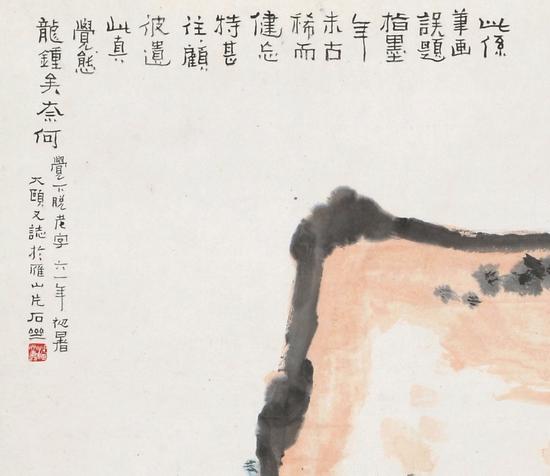 此係
筆画
誤題
指墨
年
未古
稀而
健忘
特甚
往〻顧
彼遺
此真
覺態
龍鍾矣奈何
覺下脫老字 六一年初暑
大頤又誌於雁山片石